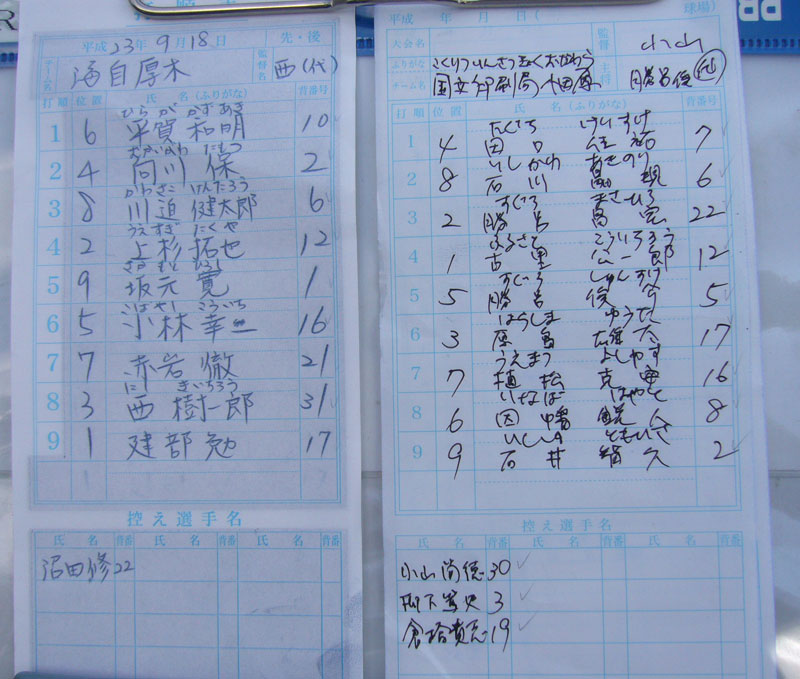 平成 23年 9月 18日
先・後
チーム名
海自厚木
監督名
西(代)
打順 位置 氏名(ふりがな) 背番号
ひらが かずあき
1 6 平賀 和明 10
にしき
2 4 向川 保 2
かわさこ けんたろう
3 8 川迫 健太郎 6
うえすぎ たくや
4 2 上杉 拓也 12
さかもと
5 9 坂元 寛 1
こばやし こういち
6 5 小林 幸一 16
7 7 赤岩 徹 21
にし きいちろう
8 3 西 樹一郎 31
9 1 建部 勉 17
控え選手名
氏名 背番 氏名 背番 氏名 背番
沼田 修 22
平成 年 月 日( 球場)
大会名
監督
小山
ふりがな
チーム名
こくりついんさつきょくおだわら
国立印刷局小田原
主将
勝呂俊
打順 位置 氏名(ふりがな) 背番号
たぐち けいすけ
1 4 田口 7
いしかわ あきのり
2 8 石川 6
すぐろ まさひろ
3 2 勝呂 昌宏 22
ふるさと こういちろう
4 1 古里 公一郎 12
すぐろ しゅんすけ
5 5 勝呂 俊介 5
はらしま ゆうた
6 3 原島 雄太 17
うえまつ よしやす
7 7 植松 克 16
いなば はやと
8 6 因幡 8
いしい ともひさ
9 9 石井 久 2
控え選手名
氏名 背番 氏名 背番 氏名 背番
小山 尚 30
3
19